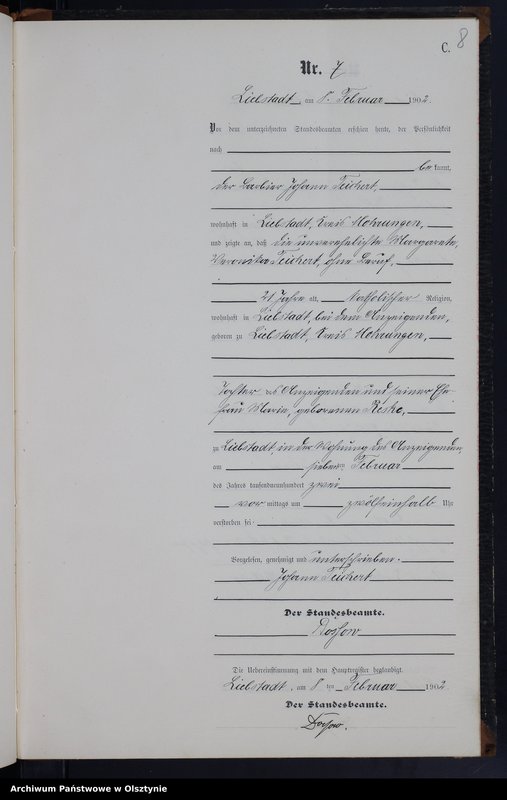 C. 8
Nr. 7
Liebstadt am 8. Februar 1902.
Vor dem unterzeichneten Standesbeamten erschien heute, der Persönlichkeit
nach
bekannt,
der Barbier Johann Teichert,
wohnhaft in Liebstadt, Kreis Mohrungen,
und zeigte an, daß die unverehelichte Margarete,
Veronika Teichert, ohne Beruf,
21 Jahre alt, katholischer Religion,
wohnhaft in Liebstadt, bei dem Anzeigenden,
geboren zu Liebstadt, Kreis Mohrungen,
Tochter des Anzeigenden und seiner Ehe-
frau Marie, geborenen Reske,
zu Liebstadt, in der Wohnung des Anzeigenden
am sieben ten Februar
des Jahres tausendneunhundert zwei
vor mittags um zwölfeinhalb Uhr
verstorben sei
Vorgelesen, genehmigt und unterschrieben.
Johann Teichert
Der Standesbeamte.
Die Uebereinstimmung mit dem Hauptregister beglaubigt.
Liebstadt, am 8 ten Februar 1902.
Der Standesbeamte.
Archiwum Państwowe w Olsztynie